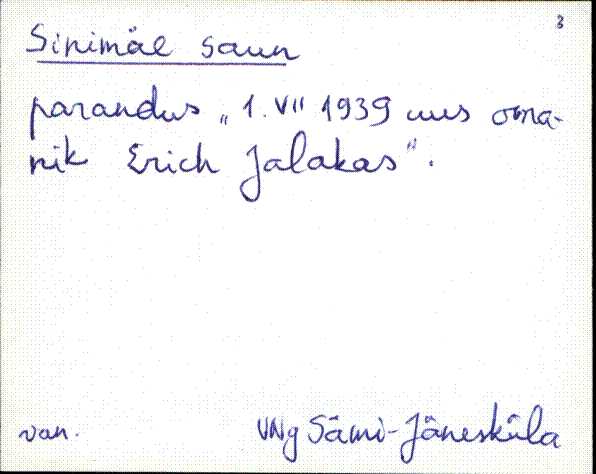 3
Sinimäe saun
parandus „1. VII 1939 uus oma-
nik Erich Jalakas".
van.
VNg Sämi-Jäneskûla